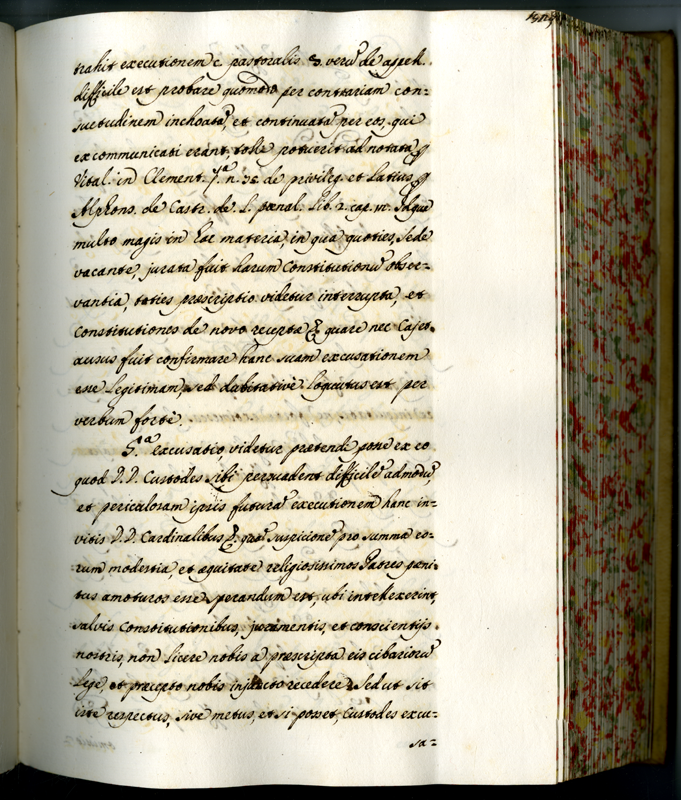 trahit executionem c. pastoralis §. verũ de appell.
difficile est probare quomodo per contrariam con=
suetudinem inchoatã, et continuatã per eos, qui
excommunicati erant, tolli potuerit ad notata p
Vital. in Clement. 1.ª n. 78. de privileg. et Latius p
Alphons. de Castr. de L. pœnal. Lib. 2. cap. Idque
multo magis in hac materia, in qua quoties, sede
vacante, jurata fuit harum Constitutionũ obser=
vantia, toties præscriptio videtur interrupta, et
Constitutiones de novo receptæ; quare nec Cajet.
ausus fuit confirmare hanc suam excusationem
esse legitimam, sed dubitative loquutus est per
verbum forte.
5.ª excusatio videtur prætendi posse ex eo
quod D.D. Custodes sibi persuadent difficilẽ admodũ
et periculosam ipsis futurã executionem hanc in=
vitis D.D. Cardinalibus; quã suspicionẽ pro summa eo=
=rum modestia, et æquitate religiosissimos Patres peni=
tus amoturos esse sperandum est, ubi intellexerint,
salvis Constitutionibus, juramentis, et conscientijs
nostris, non licere nobis a præscripta eis cibariorũ
lege, et præcepto nobis injuncto recedere. Sed ut sit
iste respectus, sive metus, et si posset, Custodes excu=
sa=